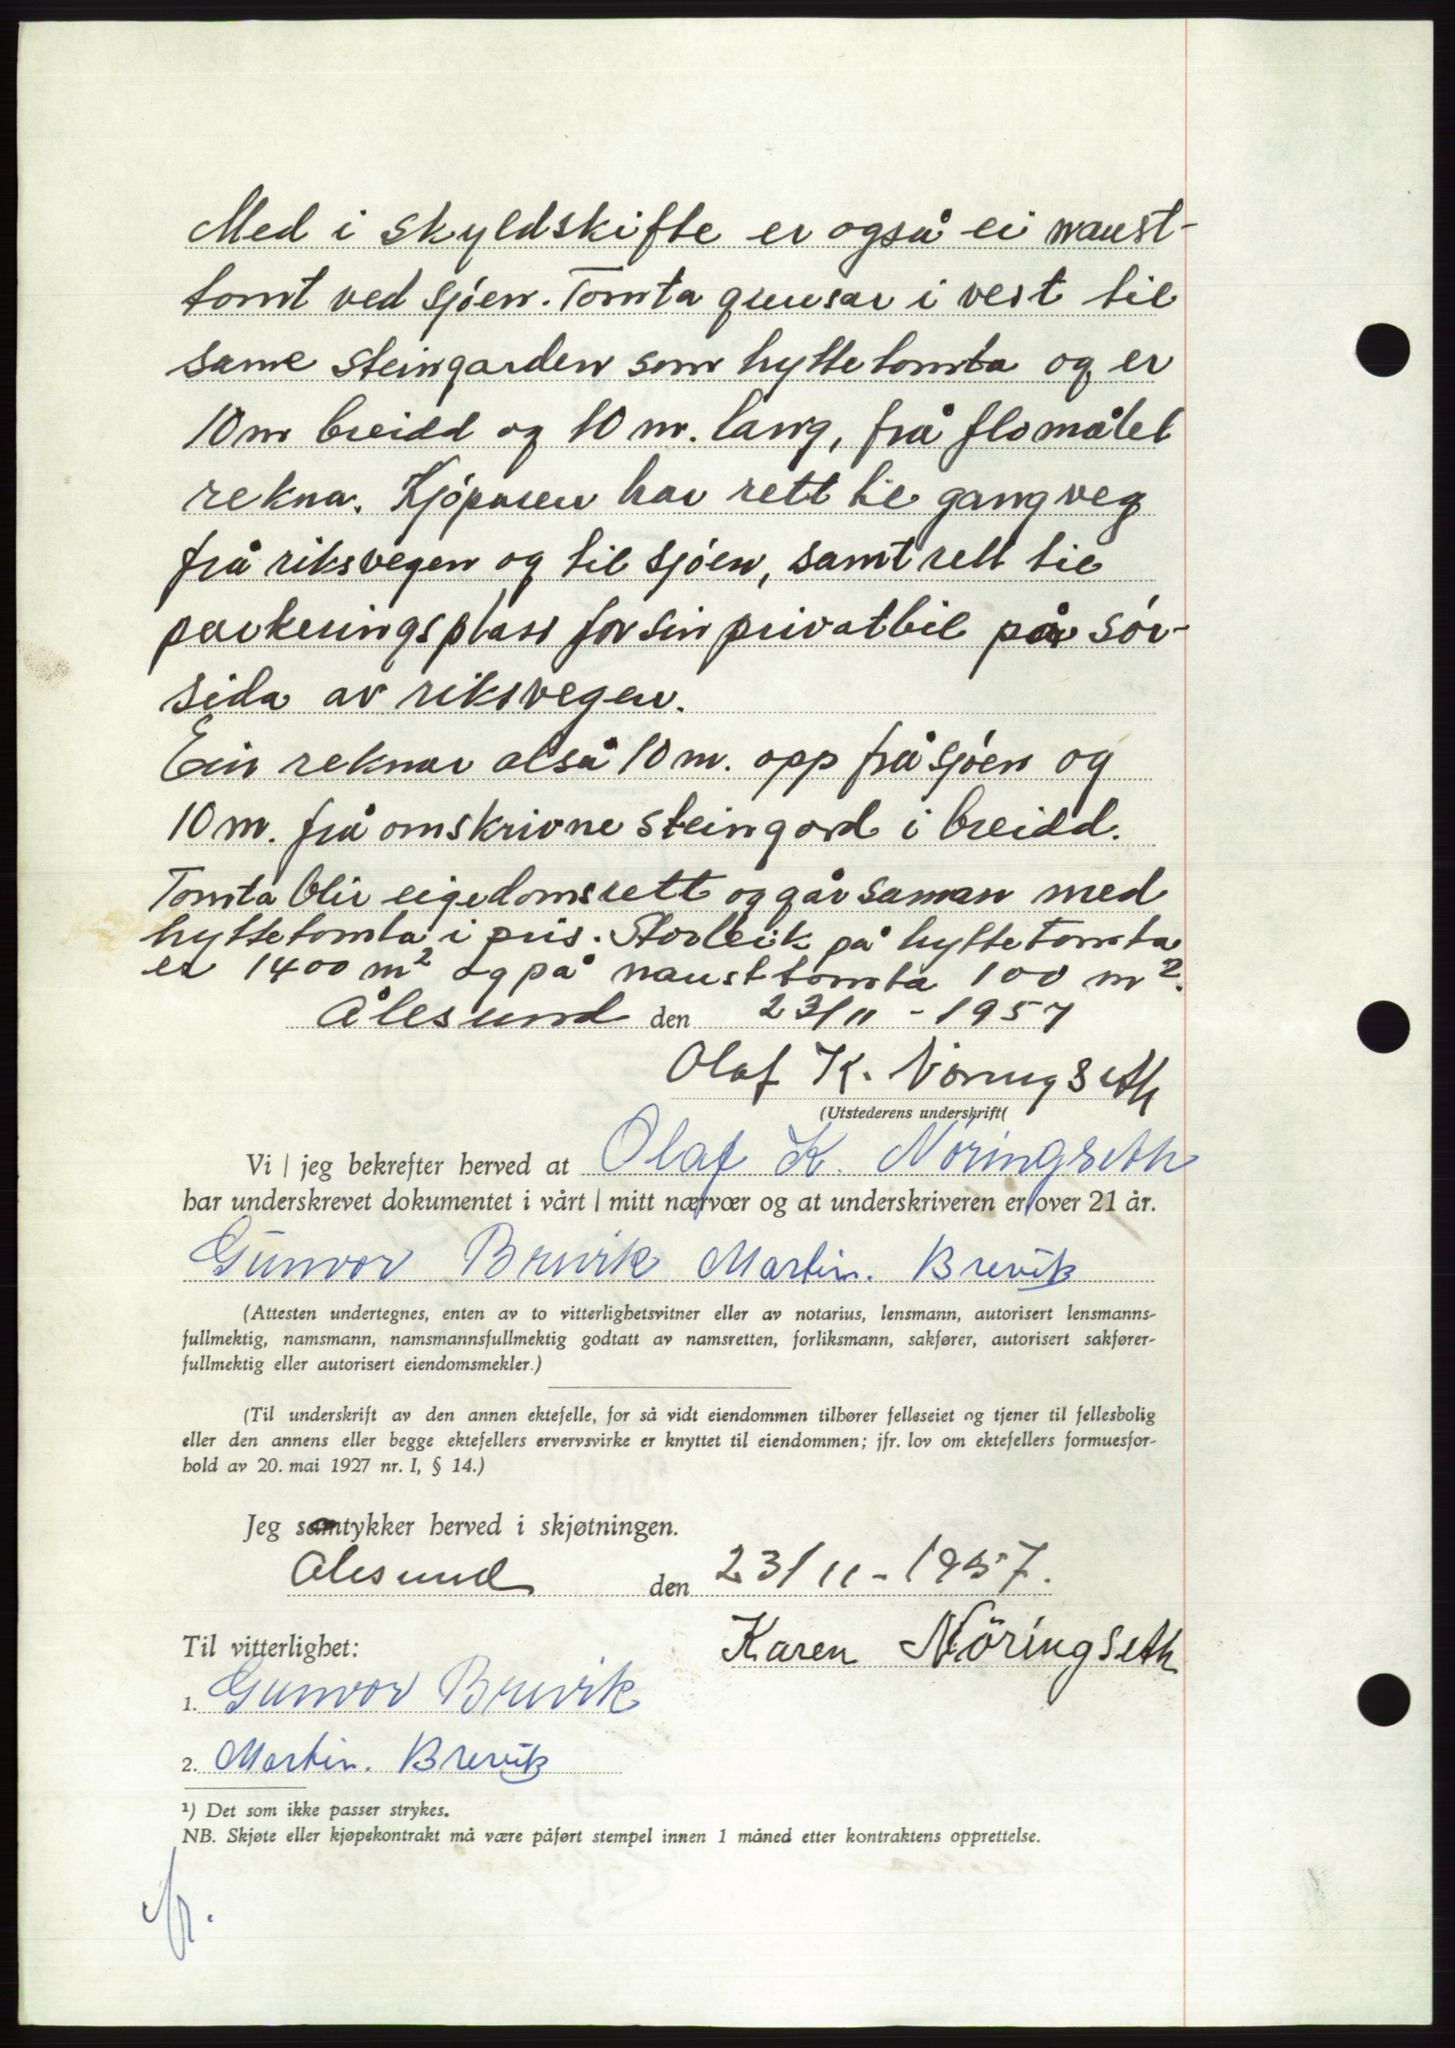 Med i skyldskifte er også ei naust-
tomt ved sjøen. Tomta grensar i vest til
same steingarden som hyttetomta og er
10 m breidd og 10 m. lang, frå flomålet
rekna. Kjøparen har rett til gangveg
frå riksvegen og til sjøen, samt rett til
parkeringsplass for sin privatbil på sør-
sida av riksvegen.
Ein reknar alså 10 m. opp frå sjøen og
10 m. frå omskrivne steingard i breidd.
Tomta blir eigedomsrett og går saman med
hyttetomta i pris. Storleik på hyttetomta
er 1400 m² og på nausttomta 100 m².
Ålesund den 23/11 - 1957
Olaf K. Nöringseth
(Utstederens underskrift(
Vi / jeg bekrefter herved at Olaf K. Nöringseth
har underskrevet dokumentet i vårt / mitt nærvær og at underskriveren er over 21 år.
Gunvor Brevik Martin. Brevik
(Attesten undertegnes, enten av to vitterlighetsvitner eller av notarius, lensmann, autorisert lensmanns-
fullmektig, namsmann, namsmannsfullmektig godtatt av namsretten, forliksmann, sakfører, autorisert sakfører-
fullmektig eller autorisert eiendomsmekler.)
(Til underskrift av den annen ektefelle, for så vidt eiendommen tilhører felleseiet og tjener til fellesbolig
eller den annens eller begge ektefellers ervervsvirke er knyttet til eiendommen; jfr. lov om ektefellers formuesfor-
hold av 20. mai 1927 nr. I, § 14.)
Jeg samtykker herved i skjøtningen.
Ålesund den 23/11 - 1957.
Karen Nöringseth
Til vitterlighet:
1. Gunvor Brevik
2. Martin. Brevik
¹) Det som ikke passer strykes.
NB. Skjøte eller kjøpekontrakt må være påført stempel innen 1 måned etter kontraktens opprettelse.